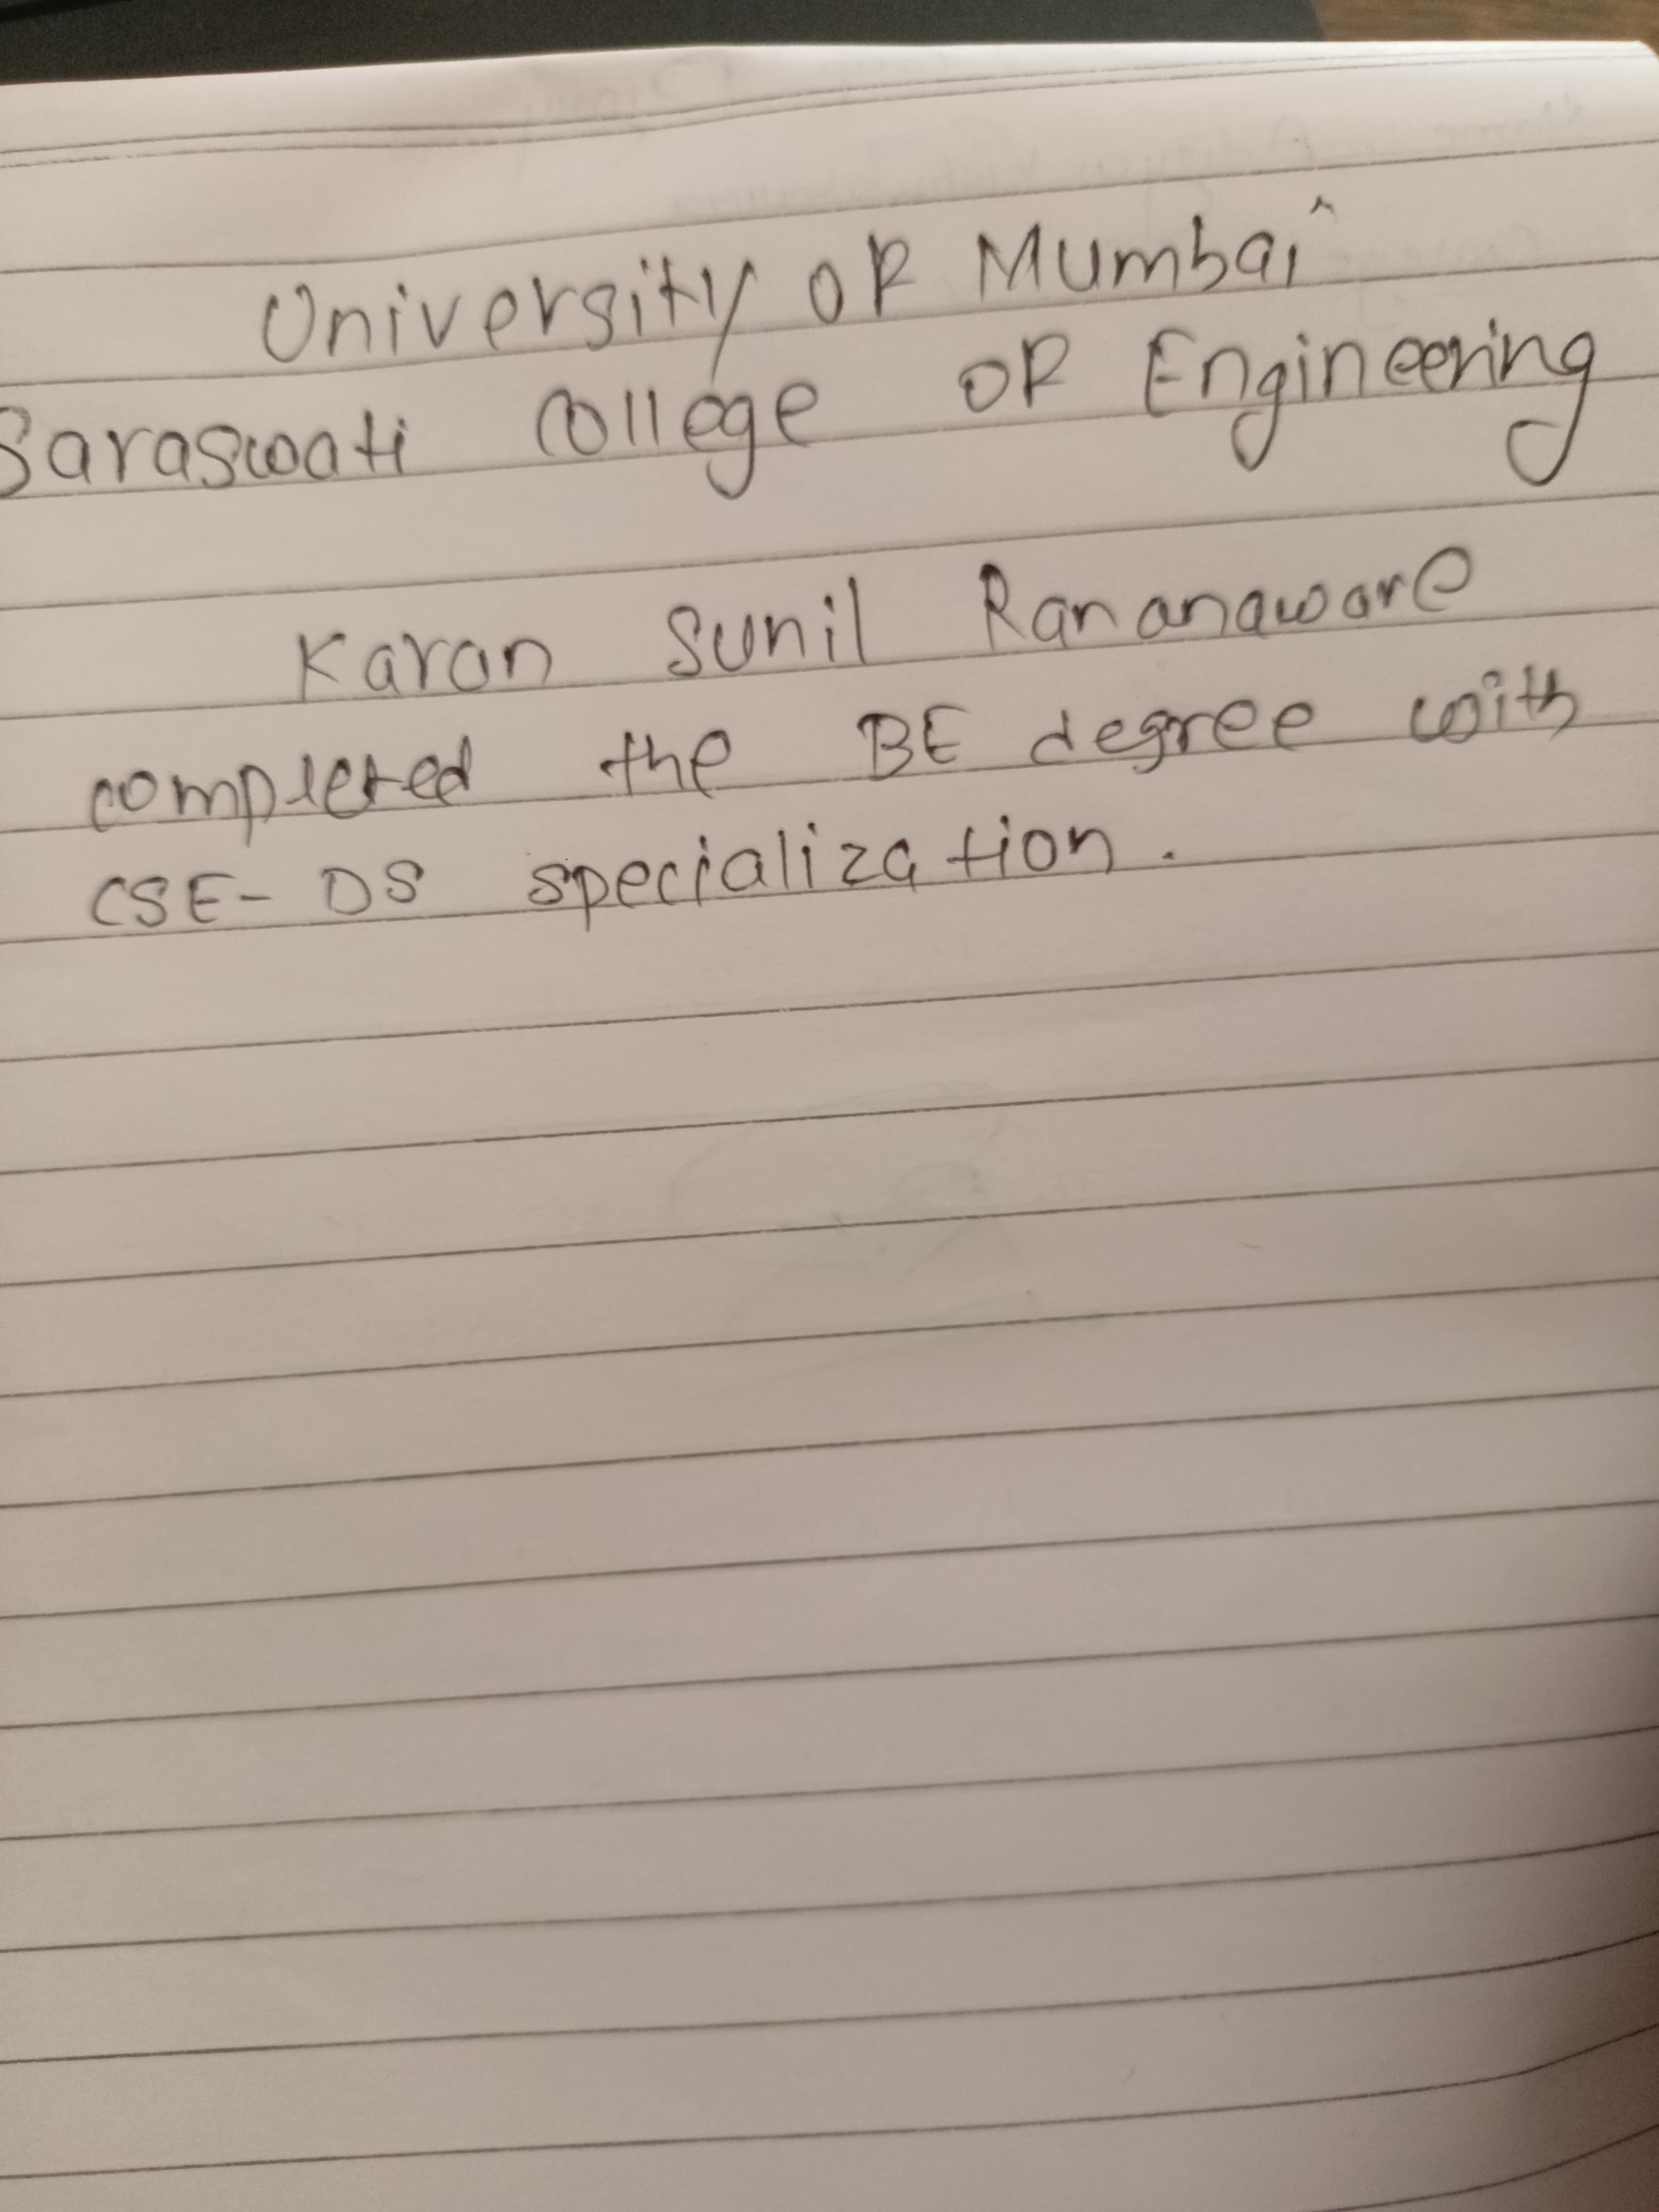 University of Mumbai
Saraswati College of Engineering
Karan Sunil Rananaware
completed the BE degree with
CSE-DS specialization.